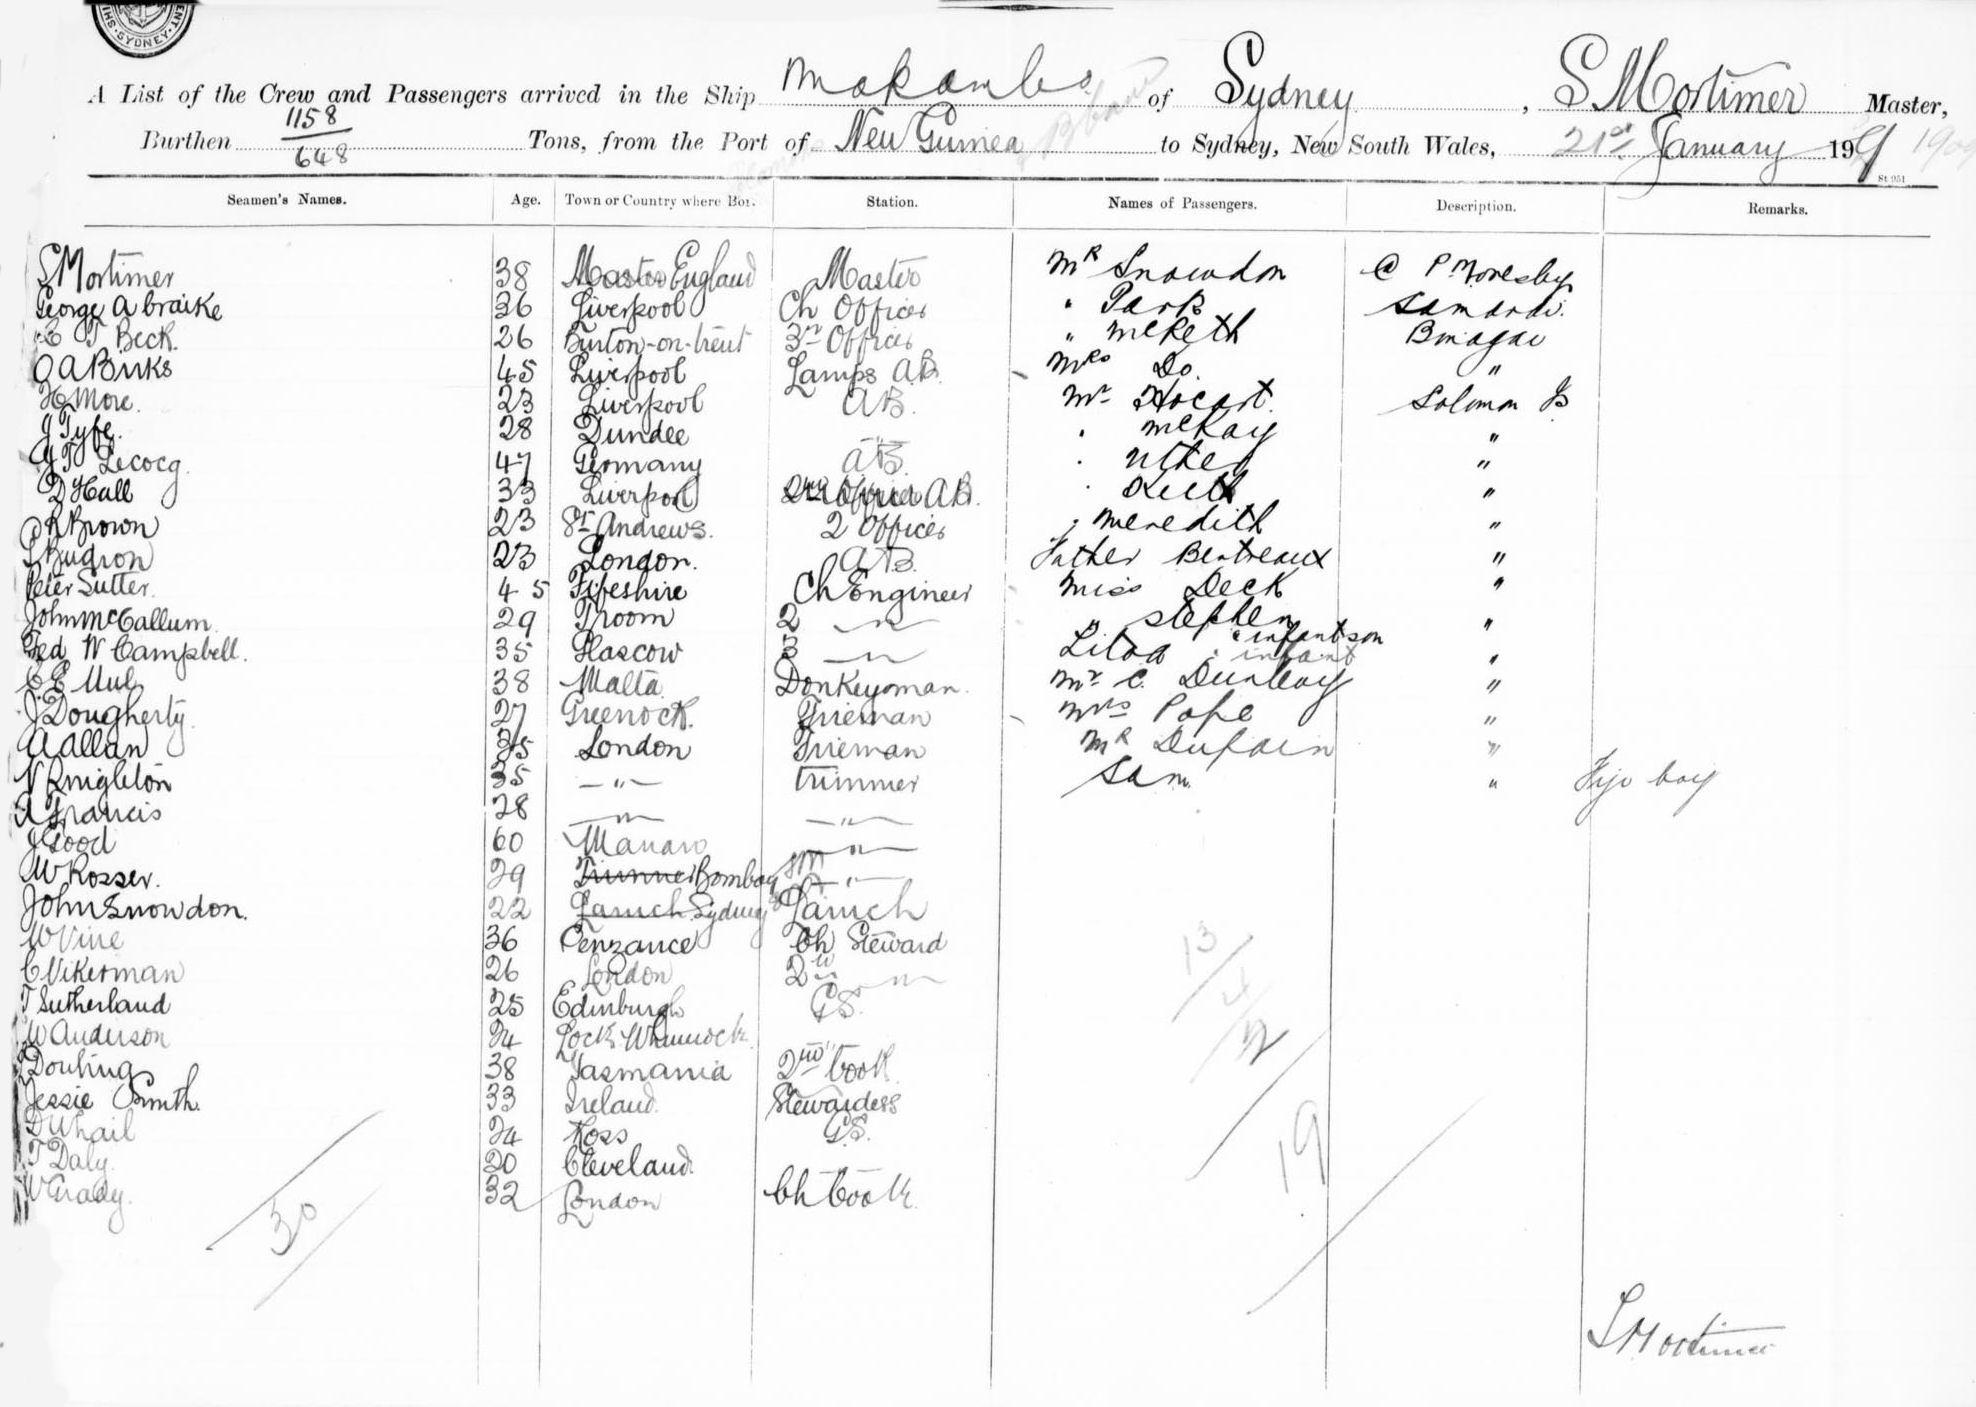 SYDNEY
A List of the Crew and Passengers arrived in the Ship Makambo of Sydney, S Mortimer Master,
Burthen 1158/648 Tons, from the Port of New Guinea to Sydney, New South Wales, 21st January 199 1909
St 951
Seamen's Names. Age. Town or Country where Bor. Station. Names of Passengers. Description. Remarks.
S Mortimer 38 England Master Mr Snowdon C P Moresby
George A Craike 36 Liverpool Ch Officer " Park Samarai.
E T Beck. 26 Burton-on-trent 3rd Officer " McKeth
O A Binks 45 Liverpool Lamps A.B. Mrs Do. "
H More. 23 Liverpool A B. Mr Hocart. Solomon Is
J Fyfe. 28 Dundee —"— . McKay "
J T Lecocq. 47 Germany A B. . "
D Hall 33 Liverpool 2nd Officer A B. . "
R Brown 23 St Andrews. 2 Officer " Meredith "
London. 23 A B. Father Bertreaux "
Peter Sutter. 45 Fifeshire Ch Engineer Miss Deck "
John McCallum 29 Troom 2 —"— " Stephen "
Fed W Campbell. 35 Glascow 3 —"— Litoa & infant son infant "
38 Malta Donkeyman. Mr C. "
J Dougherty. 27 Greenock. Frieman Mrs Pope "
A Allan 35 London Frieman Mr Dufain "
N Knighton 35 —"— trimmer Sam. " Fiji boy
A Francis 28 —"— —"—
J Good 60 —"—
W Rosser. 29 Trimmer Bombay —"—
John Snowdon. 22 Lamch Sydney Lamch
W Vine 36 Penzance Ch Steward
C Vikerman 26 London 2nd —"—
T Sutherland 25 Edinburgh G S.
W Anderson 24 Lock
Dowling 38 Tasmania 2nd Cook
Jessie Smith. 33 Ireland. Stewardess
24 Ross G.S.
T Daly. 20 Cleveland.
W Grady. 32 London Ch Cook.
13
4
2
19
30
S Mortimer